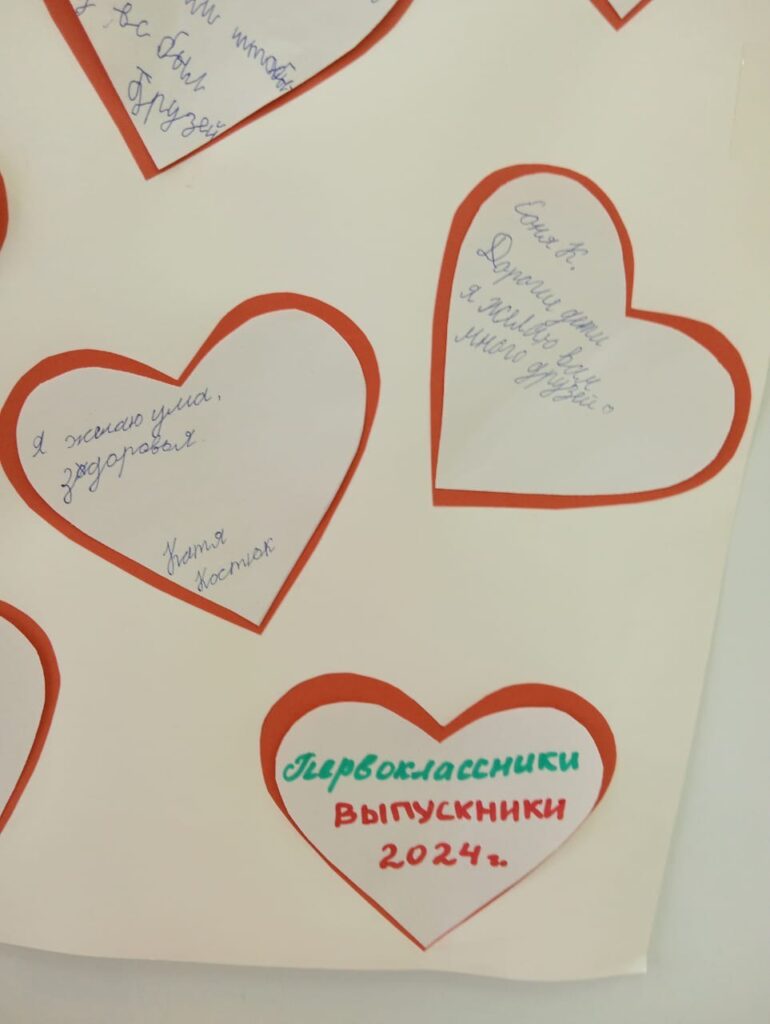 штобы
вс был
друзей
Соня К.
Дорогие дети
я желаю вам
много друзей.
Я желаю ума,
здоровья
Катя
Костюк
Первоклассники
ВЫПУСКНИКИ
2024 г.